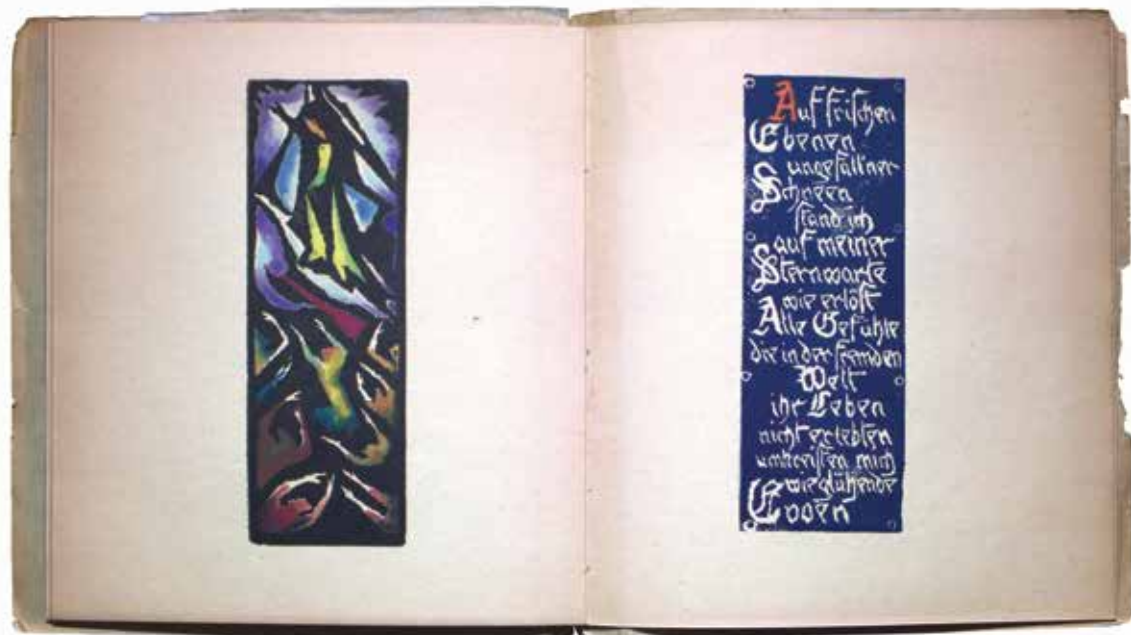 Auf frischen
Ebenen
ungefallner
Schneen
stand ich
auf meiner
Sternwarte
wie erlöst
Alle Gefühle
die in der fremden
Welt
ihr Leben
nicht erlebten
umkreisten mich
wie glühende